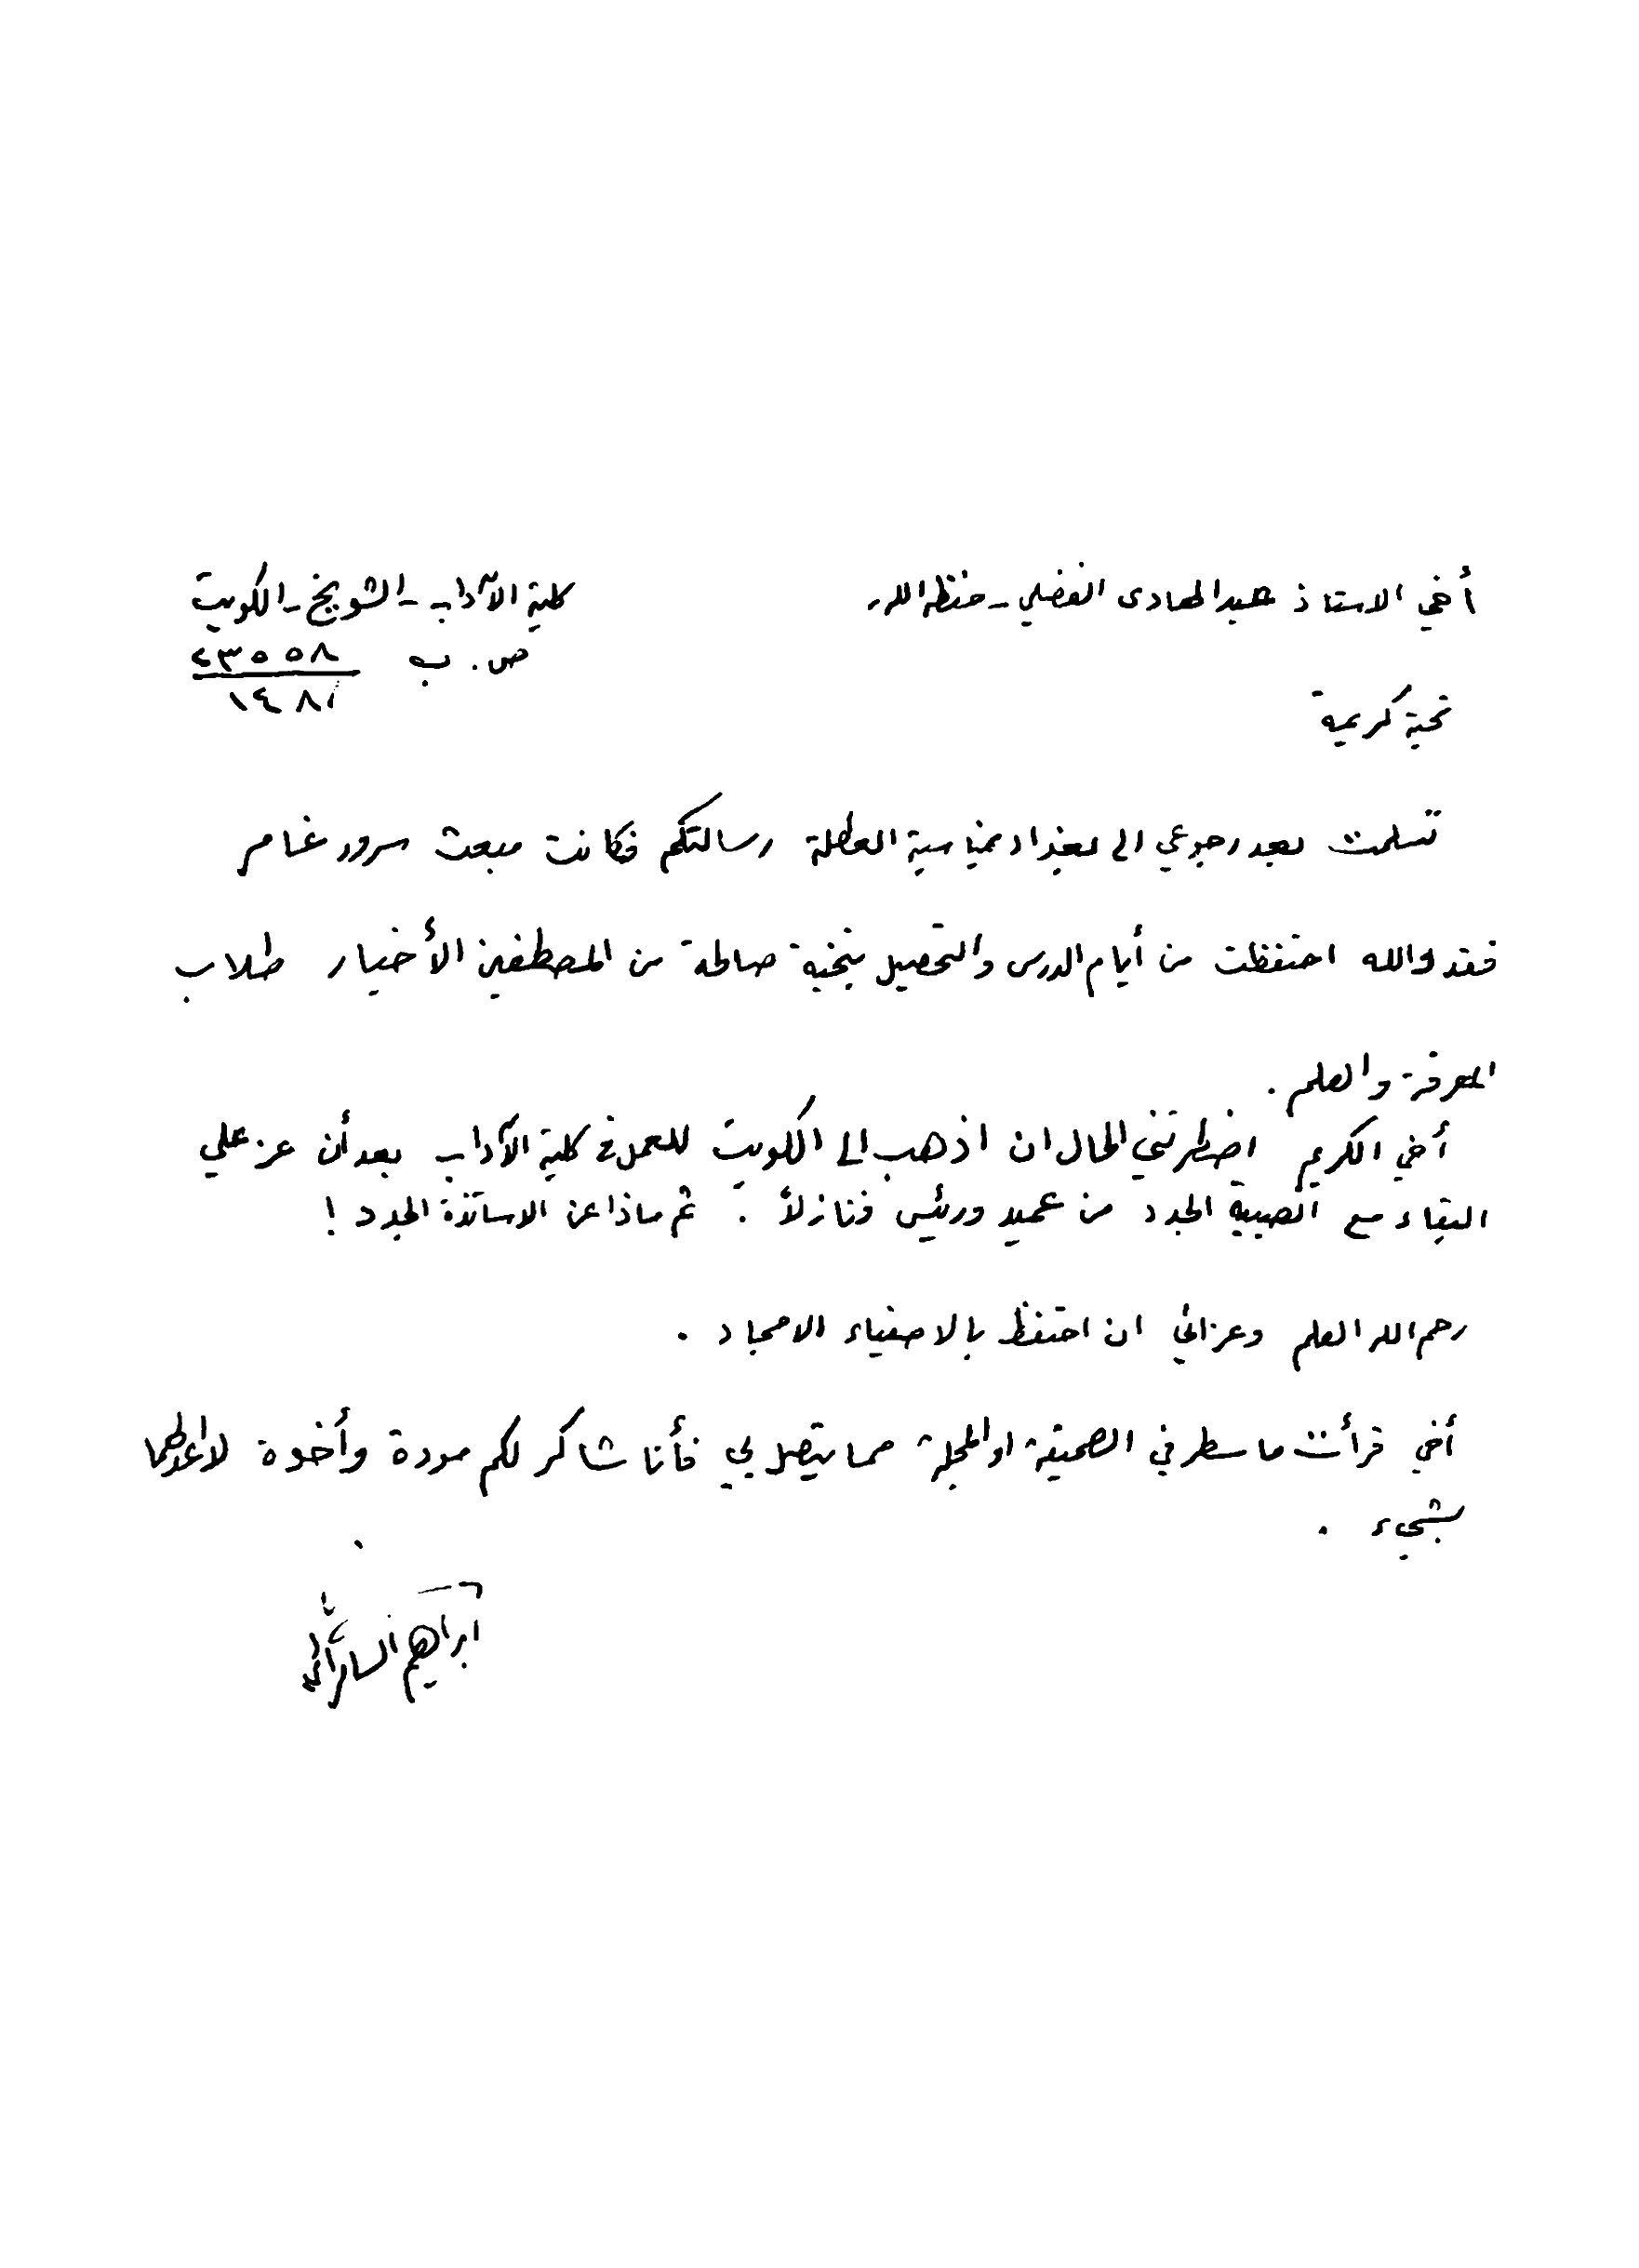 أخي الاستاذ عبدالهادى الفضلي - حفظه الله
كلية الآداب - الشويخ - الكويت
ص. ب ٢٣٥٥٨
تحية كريمة
تسلمت بعد رجوعي الى بغداد بمناسبة العطلة رسالتكم فكانت مبعث سرور غامر
فقد والله احتفظت من أيام الدرس والتحصيل بنخبة صالحة من المصطفين الأخيار طلاب
المعرفة والعلم .
أخي الكريم اضطرتني الحال ان اذهب الى الكويت للعمل في كلية الآداب بعد أن عز علي
البقاء مع الصبية الجدد من عميد ورئيس فنازلاً . ثم ماذا عن الاساتذة الجدد !
رحم الله العلم وعزائي ان احتفظ بالاصفياء الامجاد .
أخي قرأت ما سطر في الصحيفة او المجلة مما يتصل بي فأنا شاكر لكم مودة وأخوة لا اعدلهما
بشيء .
ابراهيم السامرائي